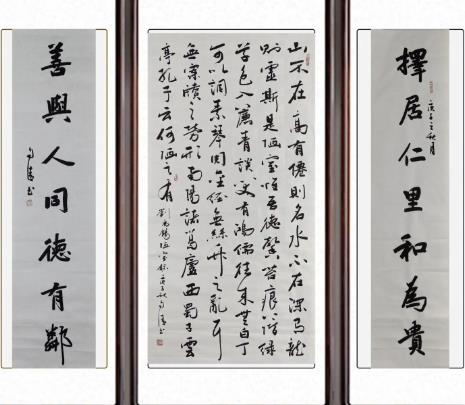 擇居仁里和為貴
庚子之秋月
山不在高有僊則名水不在深有龍
則靈斯是陋室惟吾德馨苔痕上階綠
草色入簾青談笑有鴻儒往來無白丁
可以調素琴閱金經無絲竹之亂耳
無案牘之勞形南陽諸葛廬西蜀子雲
亭孔子云何陋之有
劉禹錫陋室銘庚子秋
善與人同德有鄰